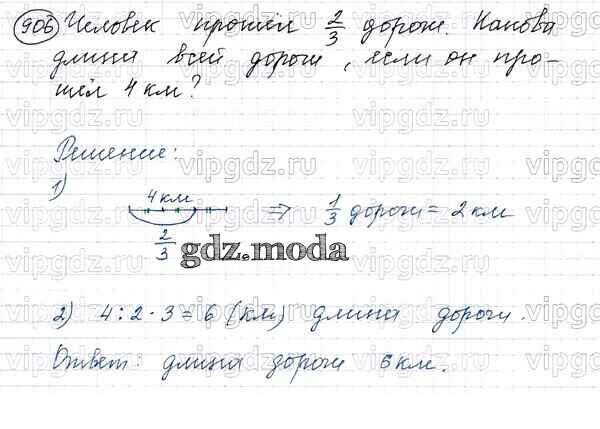 906 Человек прошёл 2/3 дороги. Какова
длина всей дороги, если он про-
шёл 4 км?
Решение:
1)
4 км
2/3
⇒ 1/3 дороги = 2 км
gdz.moda
2) 4 : 2 · 3 = 6 (км) длина дороги.
Ответ: длина дороги 6 км.
vipgdz.ru